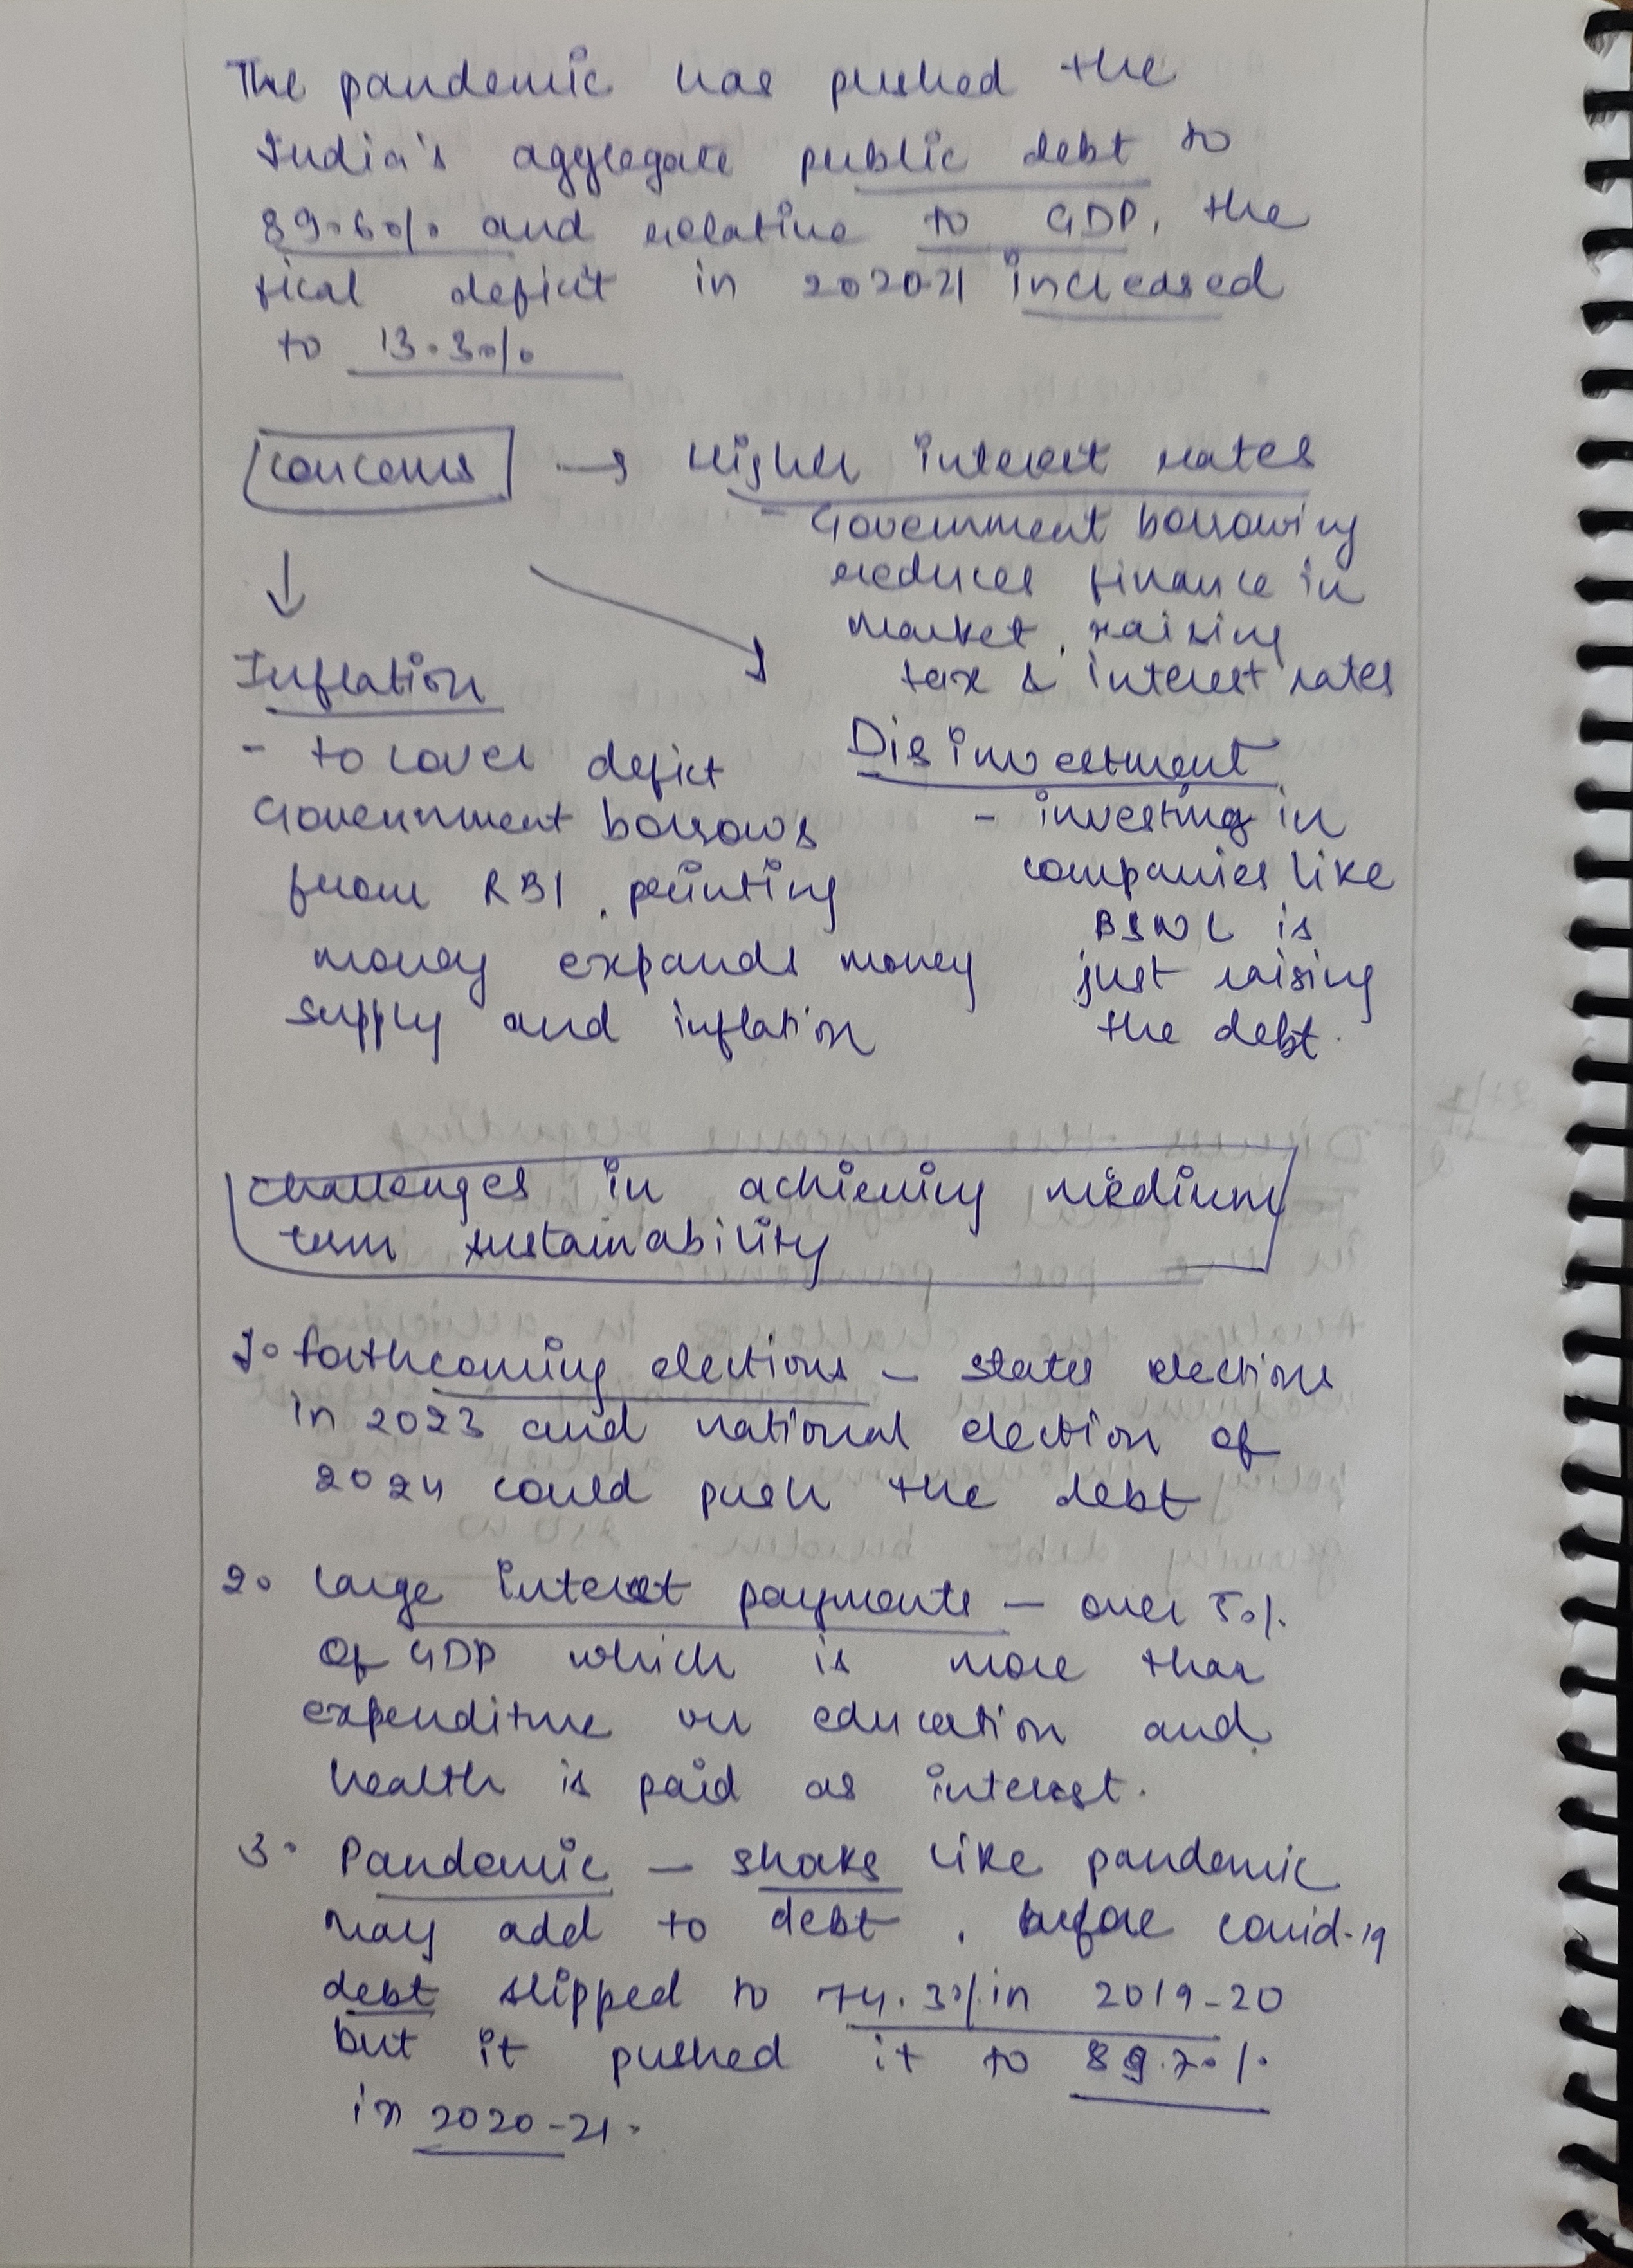 The pandemic has pushed the
India's aggregate public debt to
89.6% and relative to GDP, the
fical deficit in 2020-21 increased
to 13.3%
Concerns → Higher interest rates
- Government borrowing
reduces finance in
market, raising
tax & interest rates
Inflation
- to cover deficit
Government borrows
from RBI, printing
money expands money
supply and inflation
Disinvestment
- investing in
companies like
BSNL is
just raising
the debt.
Challenges in achieving medium
term sustainability
1. forthcoming elections - states elections
in 2023 and national election of
2024 could push the debt
2. Large interest payments - over 5%
of GDP which is more than
expenditure on education and
health is paid as interest.
3. Pandemic - shoks like pandemic
may add to debt, before covid-19
debt slipped to 74.3% in 2019-20
but it pushed it to 89.7%
in 2020-21.